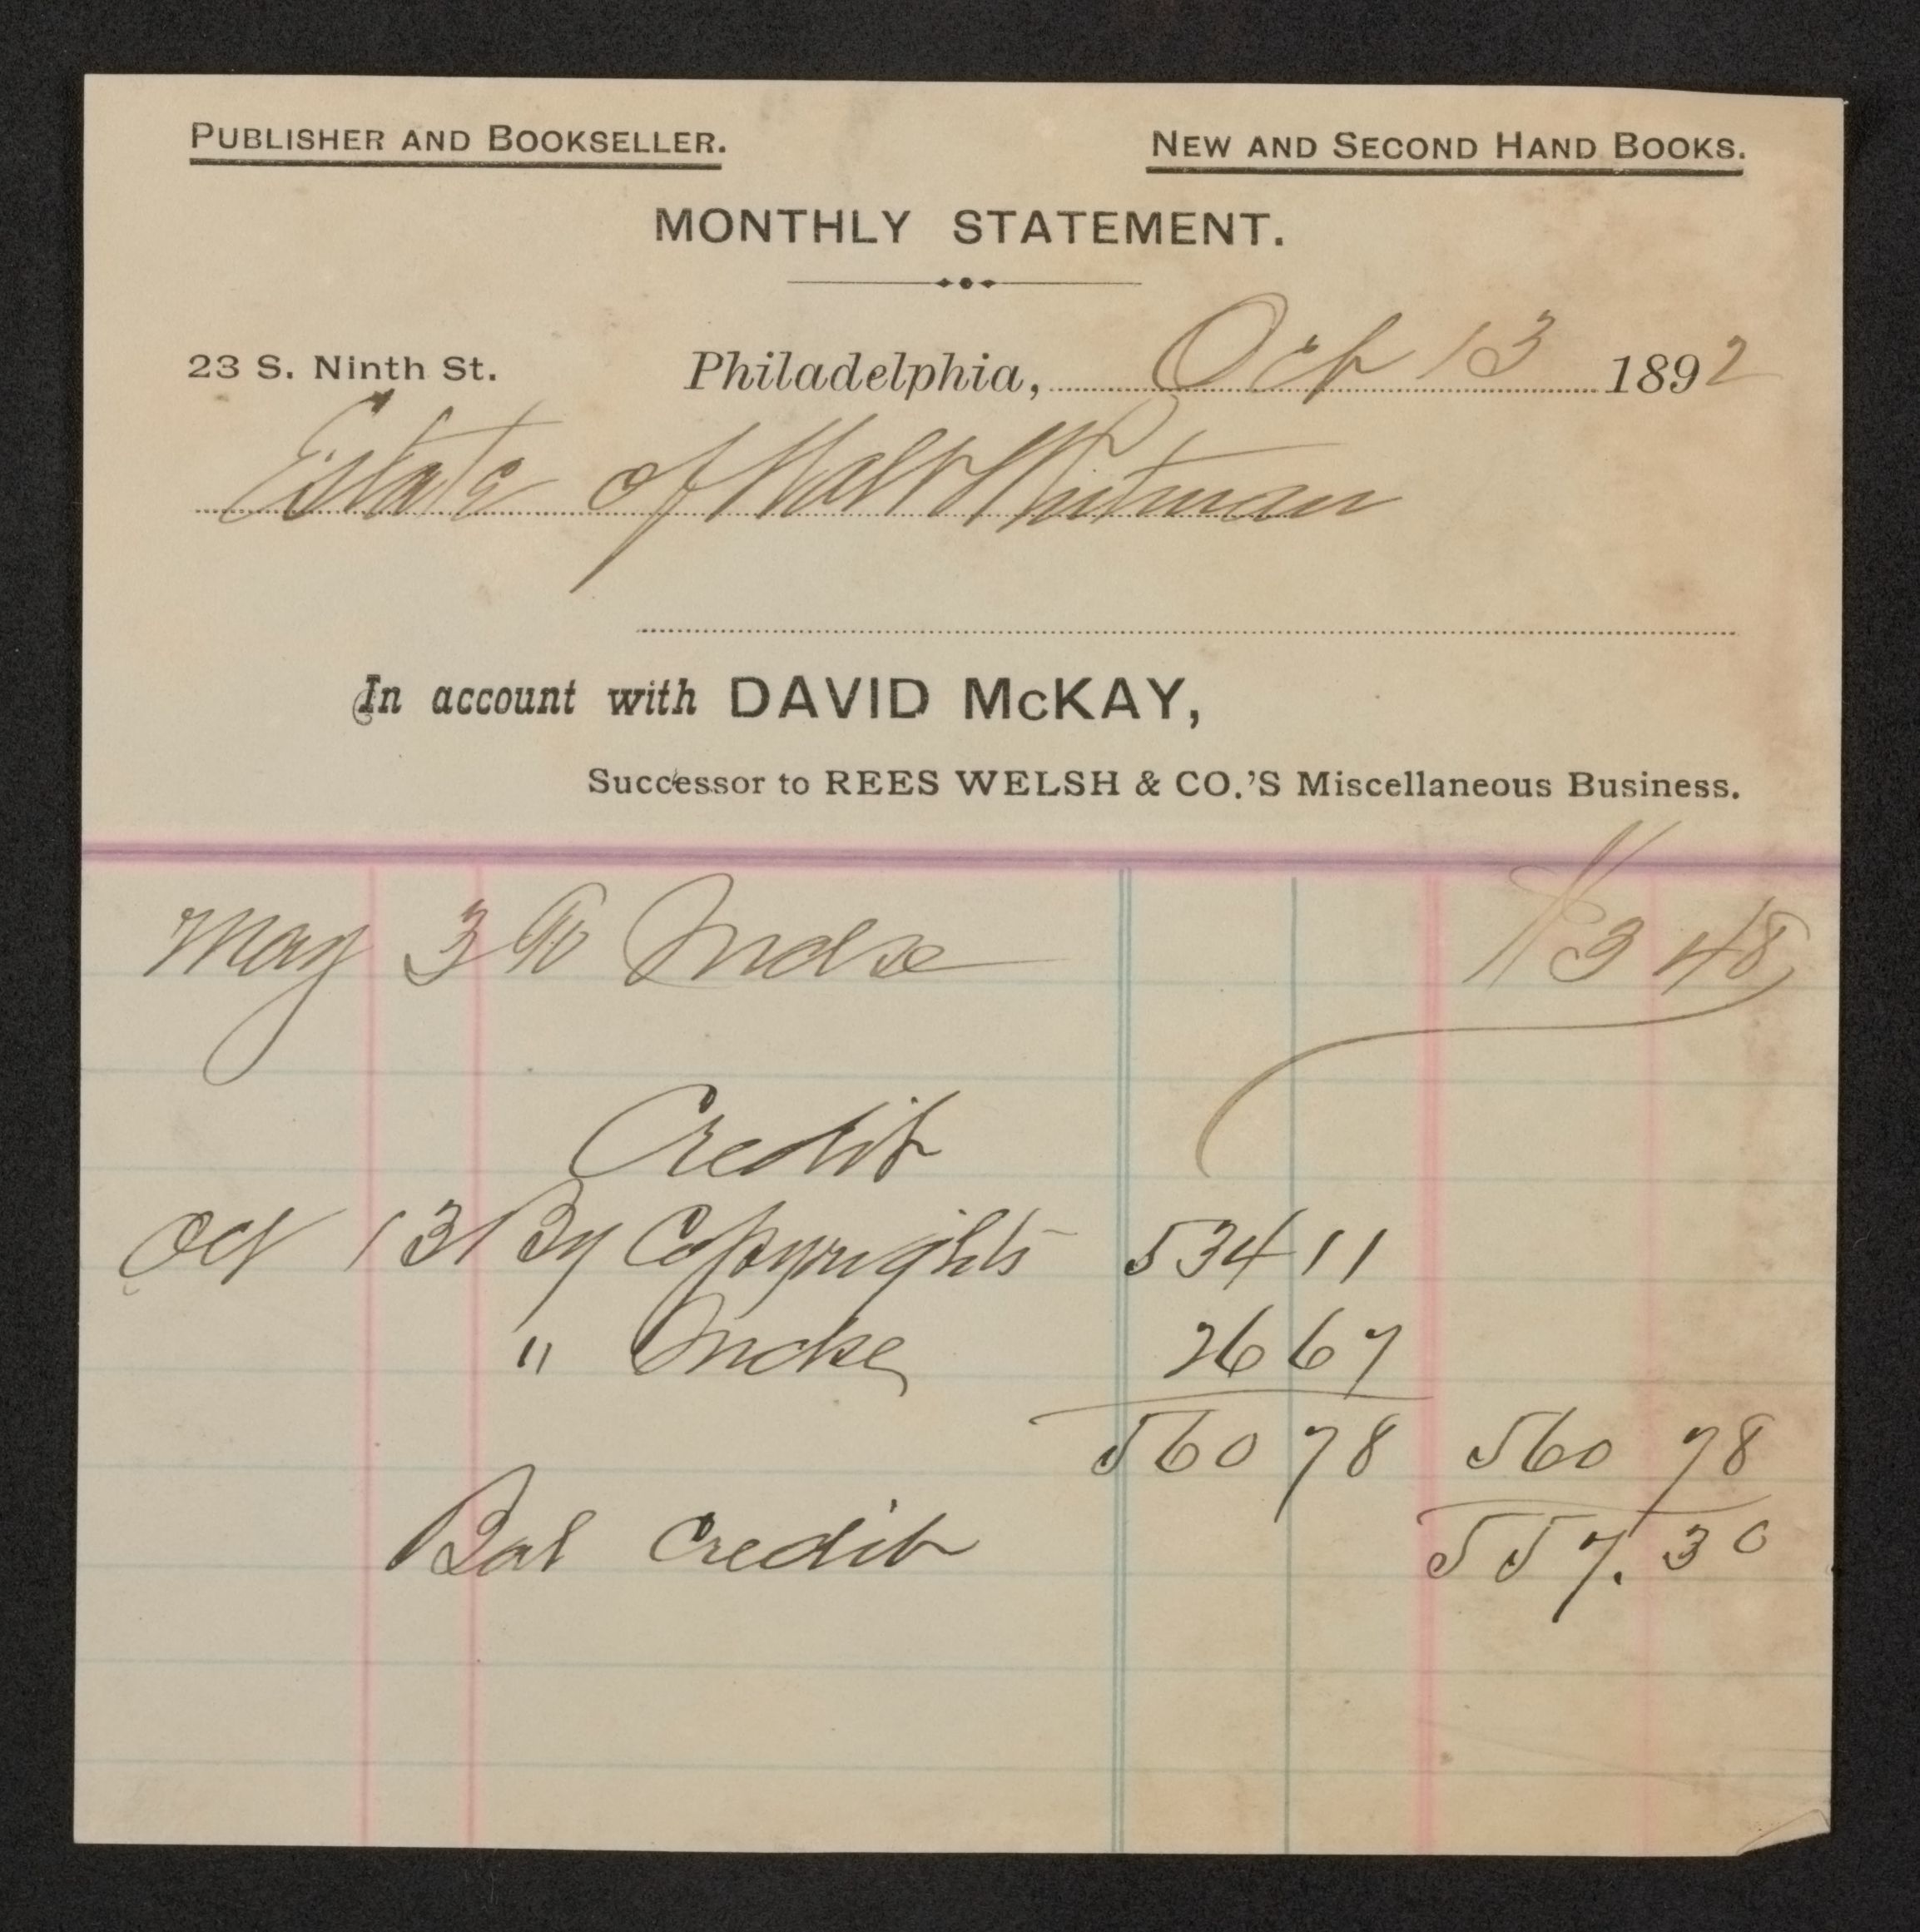 PUBLISHER AND BOOKSELLER.
NEW AND SECOND HAND BOOKS.
MONTHLY STATEMENT.
23 S. Ninth St. Philadelphia, Oct 13 1892
Estate of Walt Whitman
In account with DAVID McKAY,
Successor to REES WELSH & CO.'S Miscellaneous Business.
May 3 To Mdse $3 48
Credit
Oct 13 By Copyrights 534 11
" Mdse 26 67
560 78 560 78
Bal Credit 557.30